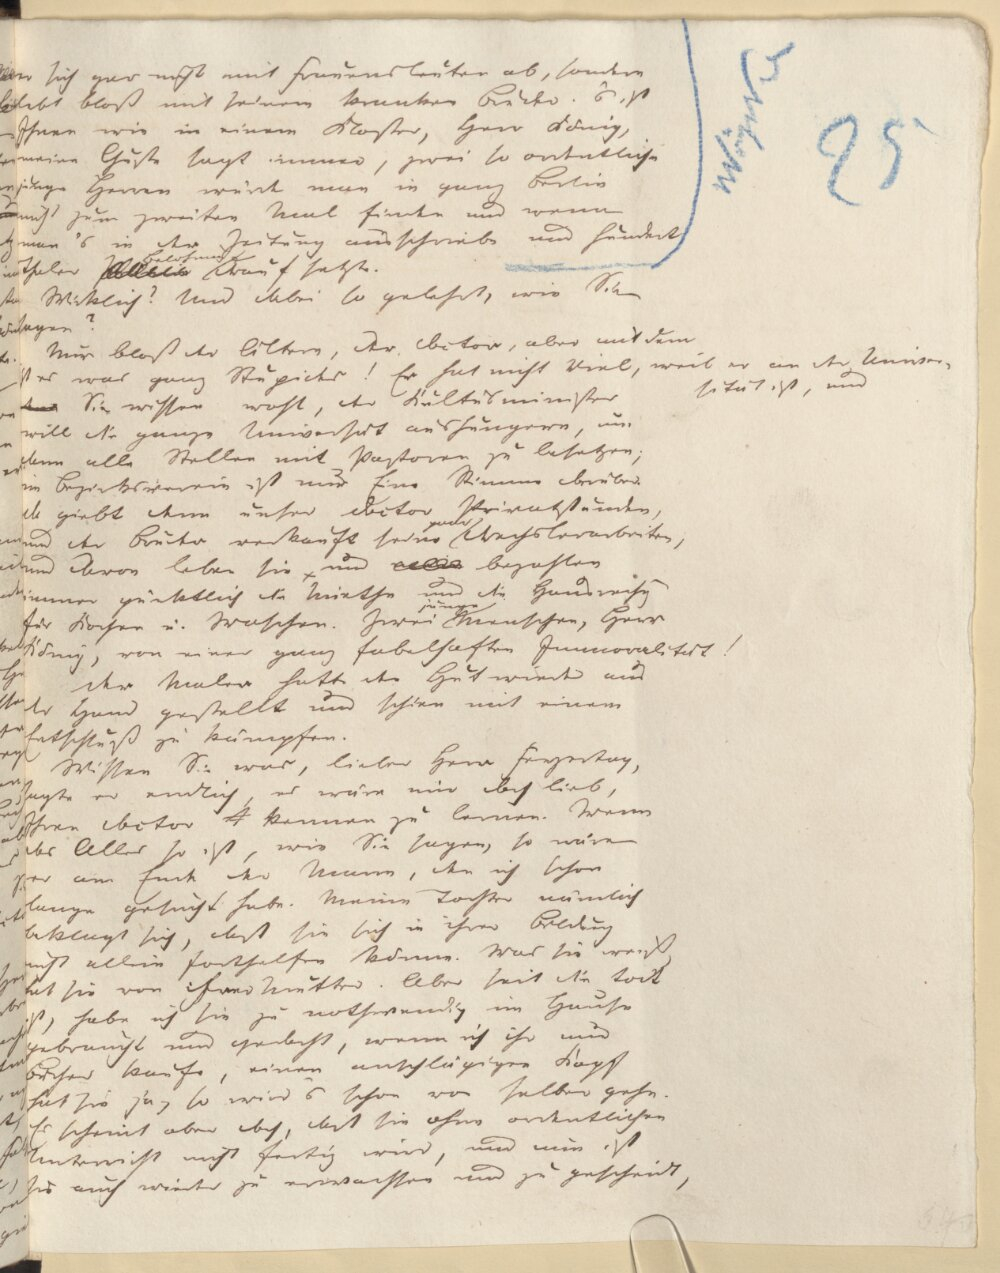 sich gar nicht mit Frauensleuten ab, sondern
lebt bloß mit seinem kranken Bruder. 's ist
Ihnen wie in einem Kloster, Herr König,
meine Guste sagt immer, zwei so ordentliche
junge Herren würde man in ganz Berlin
nicht zum zweiten Mal finden und wenn
man's in der Zeitung ausschriebe und hundert
Thaler Belohnung drauf setzte.
Wirklich? Und dabei so gelehrt, wie Sie
sagen?
Nur bloß der Ältere, der Doctor, aber mit dem
ist es was ganz Stupides! Er hat nicht viel, weil er an der Univer-
sität ist, und
Sie wissen wohl, der Kultusminister
will die ganze Universität aushungern, um
dann alle Stellen mit Pastoren zu besetzen;
im Bezirksverein ist nur Eine Stimme darüber.
da giebt denn unser Doctor Privatstunden,
und der Bruder verkauft seine Drechslerarbeiten,
und davon leben sie und bezahlen
immer pünktlich die Miethe und die Hausreinig
für Kochen u. Waschen. Zwei junge Menschen, Herr
König, von einer ganz fabelhaften Immoralität!
Der Maler hatte den Hut wieder aus
der Hand gestellt und schien mit einem
Entschluß zu kämpfen.
Wissen Sie was, lieber Herr Feyertag,
sagte er endlich, es wäre mir doch lieb,
Ihren Doctor kennen zu lernen. Wenn
das Alles so ist, wie Sie sagen, so wäre
er am Ende der Mann, den ich schon
lange gesucht habe. Meine Tochter nämlich
beklagt sich, daß sie sich in ihrer Bildung
nicht allein forthelfen könne. Was sie weiß,
hat sie von ihrer Mutter. Aber seit die todt
ist, habe ich sie zu nothwendig im Hause
gebraucht und gedacht, wenn ich ihr nur
Bücher kaufe, einen anschlägigen Kopf
hat sie ja, so wird's schon von selber gehn.
Es scheint aber doch, daß sie ohne ordentlichen
Unterricht nicht fertig wird, und nun ist
sie auch wieder zu erwachsen und zu gescheidt,
25